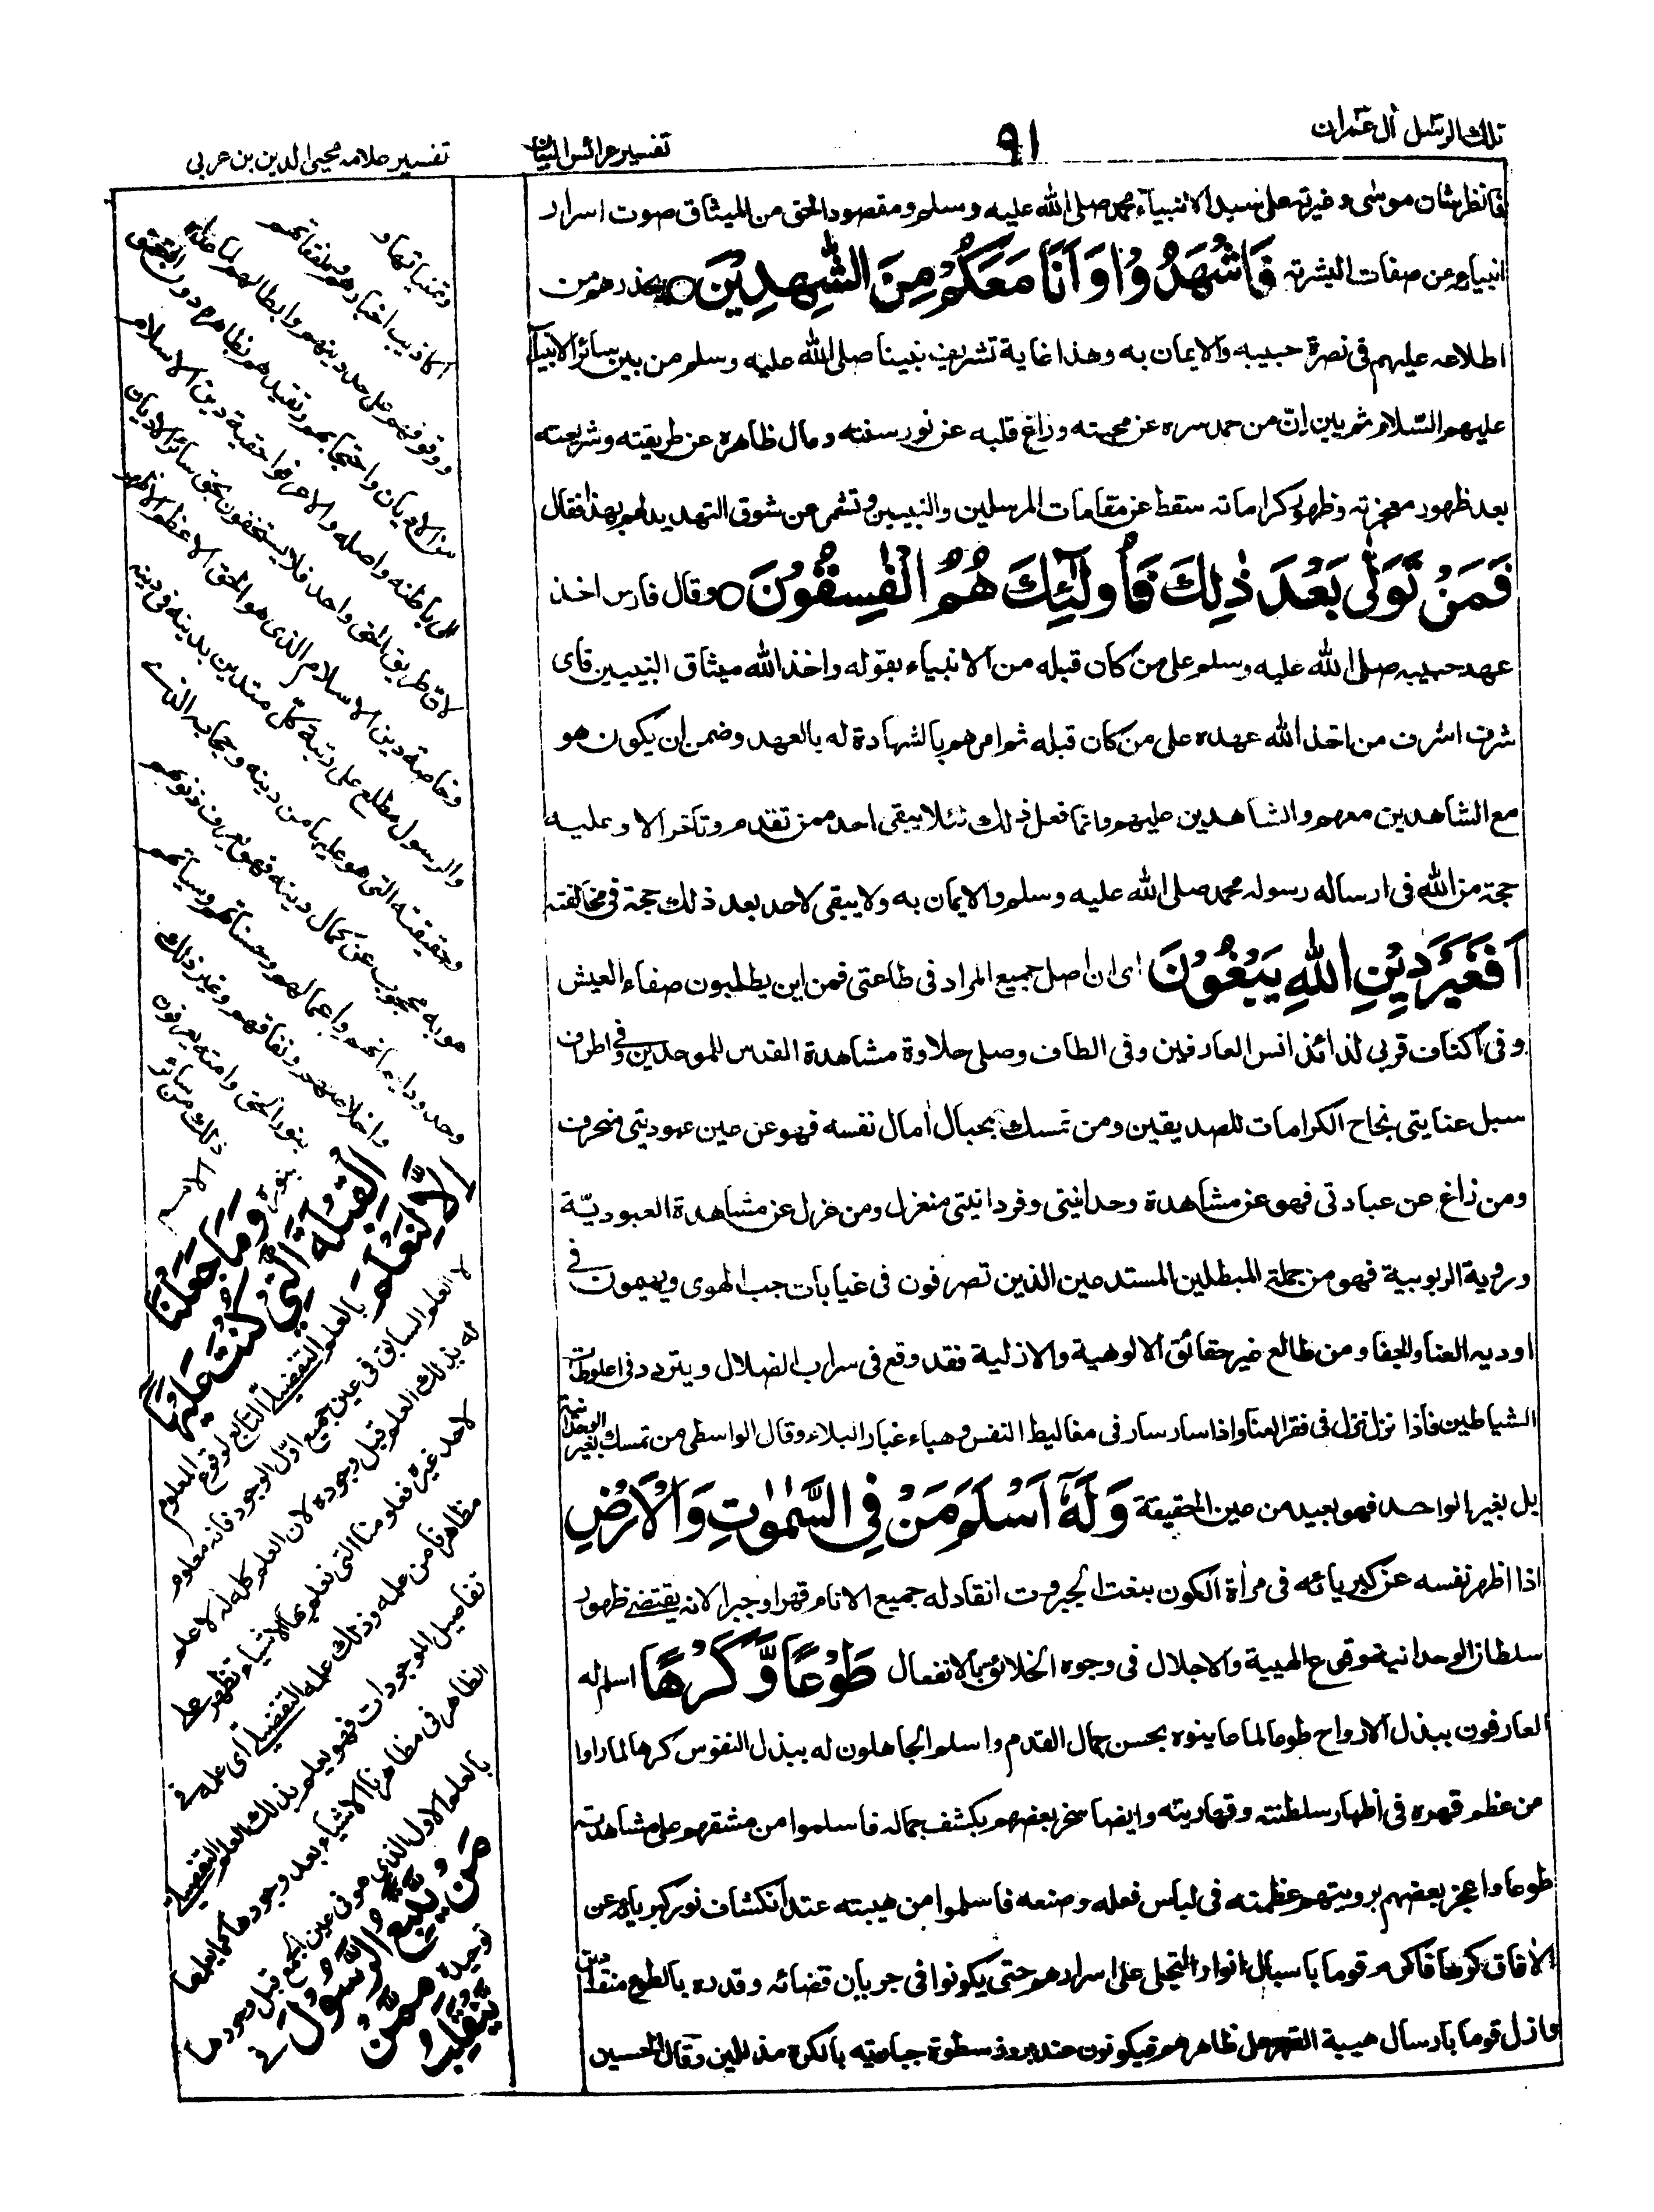 تلك الرسل آل عمران
٩١
تفسير عرائس البيان
تفسير علامه محيى الدين بن عربى
فانظر بشان موسى وغيرته على سيد الانبياء محمد صلى الله عليه وسلم ومقصود الحق من الميثاق صوت اسرار
انبياء عن صفات البشرية فَاشْهَدُوْا وَاَنَا مَعَكُمْ مِنَ الشّٰهِدِيْنَ ○ يحذرهم من
اطلاعه عليهم فى نصرة حبيبه والايمان به وهذا غاية تشريف نبينا صلى الله عليه وسلم من بين سائر الانبياء
عليهم السّلام ثم بين انّ من حمد سره عن محبته وزاغ قلبه عن نور سنته ومال ظاهره عن طريقته وشريعته
بعد ظهور معجزته وظهور كراماته سقط عن مقامات المرسلين والنبيين وتشمر عن شوق التهديد لهم بهذا فقال
فَمَنْ تَوَلّٰى بَعْدَ ذٰلِكَ فَاُولٰٓئِكَ هُمُ الْفٰسِقُوْنَ ○ وقال فارس اخذ
عهد حبيبه صلى الله عليه وسلم على من كان قبله من الانبياء بقوله واخذ الله ميثاق النبيين فاى
شرف اشرف من اخذ الله عهده على من كان قبله ثم امرهم بالشهادة له بالعهد وضمن ان يكون هو
مع الشاهدين معهم والشاهدين عليهم وانما فعل ذلك لئلا يبقى احد ممن تقدم وتأخر الا وعليه
حجة من الله فى ارساله رسوله محمد صلى الله عليه وسلم والايمان به ولا يبقى لاحد بعد ذلك حجة فى مخالفته
اَفَغَيْرَ دِيْنِ اللّٰهِ يَبْغُوْنَ اى ان اصل جميع المراد فى طاعتى فمن اين يطلبون صفاء العيش
وفى اكناف قربى لذائذ انس العارفين وفى الطاف وصلى حلاوة مشاهدة القدس للموحدين وفى اطراف
سبل عنايتى نجاح الكرامات للصديقين ومن تمسك بحبال آمال نفسه فهو عن عين عبوديتى منحرف
ومن زاغ عن عبادتى فهو عن مشاهدة وحدانيتى وفردانيتى منعزل ومن عزل عن مشاهدة العبوديّة
ورؤية الربوبية فهو من جملة المبطلين المستدعين الذين تصرفون فى غيابات جب الهوى ويهيمون فى
اوديه العنا والجفا ومن طالع غير حقائق الالوهية والازلية فقد وقع فى سراب الضلال ويتردد فى اغلوطات
الشياطين فاذا نزل نزل فى فقر العنا واذا سار سار فى مغاليط النفس وهباء غبار البلاء وقال الواسطى من تمسك بغير الوحدانية
بل بغير الواحد فهو بعيد من عين الحقيقة وَلَهٗٓ اَسْلَمَ مَنْ فِى السَّمٰوٰتِ وَالْاَرْضِ
اذا اظهر نفسه عن كبريائه فى مرأة الكون بنعت الجبروت انقاد له جميع الانام قهرا وجبرا لانه يقتضى ظهور
سلطان الوحدانية وقوع الهيبة والاجلال فى وجوه الخلائق بالانفعال طَوْعًا وَّكَرْهًا اسلم له
العارفون ببذل الارواح طوعا لما عاينوه بحسن جمال القدم واسلم الجاهلون له ببذل النفوس كرها لما راوا
من عظم قهره فى اظهار سلطنته وقهاريته وايضا سخر بعضهم بكشف جماله فاسلموا من مشقهم على مشاهدته
طوعا واعجز بعضهم برويتهم عظمته فى لباس فعله وصنعه فاسلموا من هيبته عند انكشاف نور كبرياءه عن
الآفاق كرها فاكرم قوما باسبال انوار التجلى على اسرارهم حتى يكونوا فى جريان قضائه وقدره بالطوع منقادين
واذل قوما بارسال هيبة القهر على ظاهرهم فيكونون عند بروز سطوة جباريته بالكره مذللين وقال الحسين
وتمنياتها و
اكاذيب اخبارهم وملفقاتهم
ووقوفهم على حد دينهم وابطالهم لما عليه
سوا الاديان واحتجابهم وتقيدهم بظاهره دون التعمق
الى باطنه واصله والا عرفوا حقية دين الاسلام
لان طريق الحق واحد فلا يستخفون بحق سائر الاديان
وخاصة دين الاسلام الذى هو الحق الاعظم الاظهر
والرسول مطلع على رتبة كلّ متدين بدينه فى دينه
وحقيقته التى هو عليها من دينه وحجابه الذى
هو به محجوب عن كمال دينه فهو يعرف ذنوبهم
وحدود ايمانهم واعمالهم وحسناتهم وسياتهم
واخلاصهم ونفاقهم وغير ذلك
بنور الحق وامته يعرفون
ذلك من سائر
الامم
بنوره وَمَا جَعَلْنَا
الْقِبْلَةَ الَّتِيْ كُنْتَ عَلَيْهَا
اِلَّا لِنَعْلَمَ بالعلم التفصيلى التابع لوقوع المعلوم
لا العلم السابق فى عين جميع اوّل الوجود فانه معلوم
له بذلك العلم قبل وجوده لان العلم كله له لا علم
لاحد غيره فعلومنا التى نعلم بها الاشياء تظهر على
مظاهرنا من علمه وذلك علمه التفصيلى اى علمه فى
تفاصيل الموجودات فهو يعلم بذلك العلم التفصيلى
الظاهر فى مظاهرنا الاشياء بعد وجودها كما يعلمها
بالعلم الاول الذى هو فى عين الجمع قبل وجودها
مَنْ يَّتَّبِعُ الرَّسُوْلَ فى
توحيده مِمَّنْ
يَّنْقَلِبُ